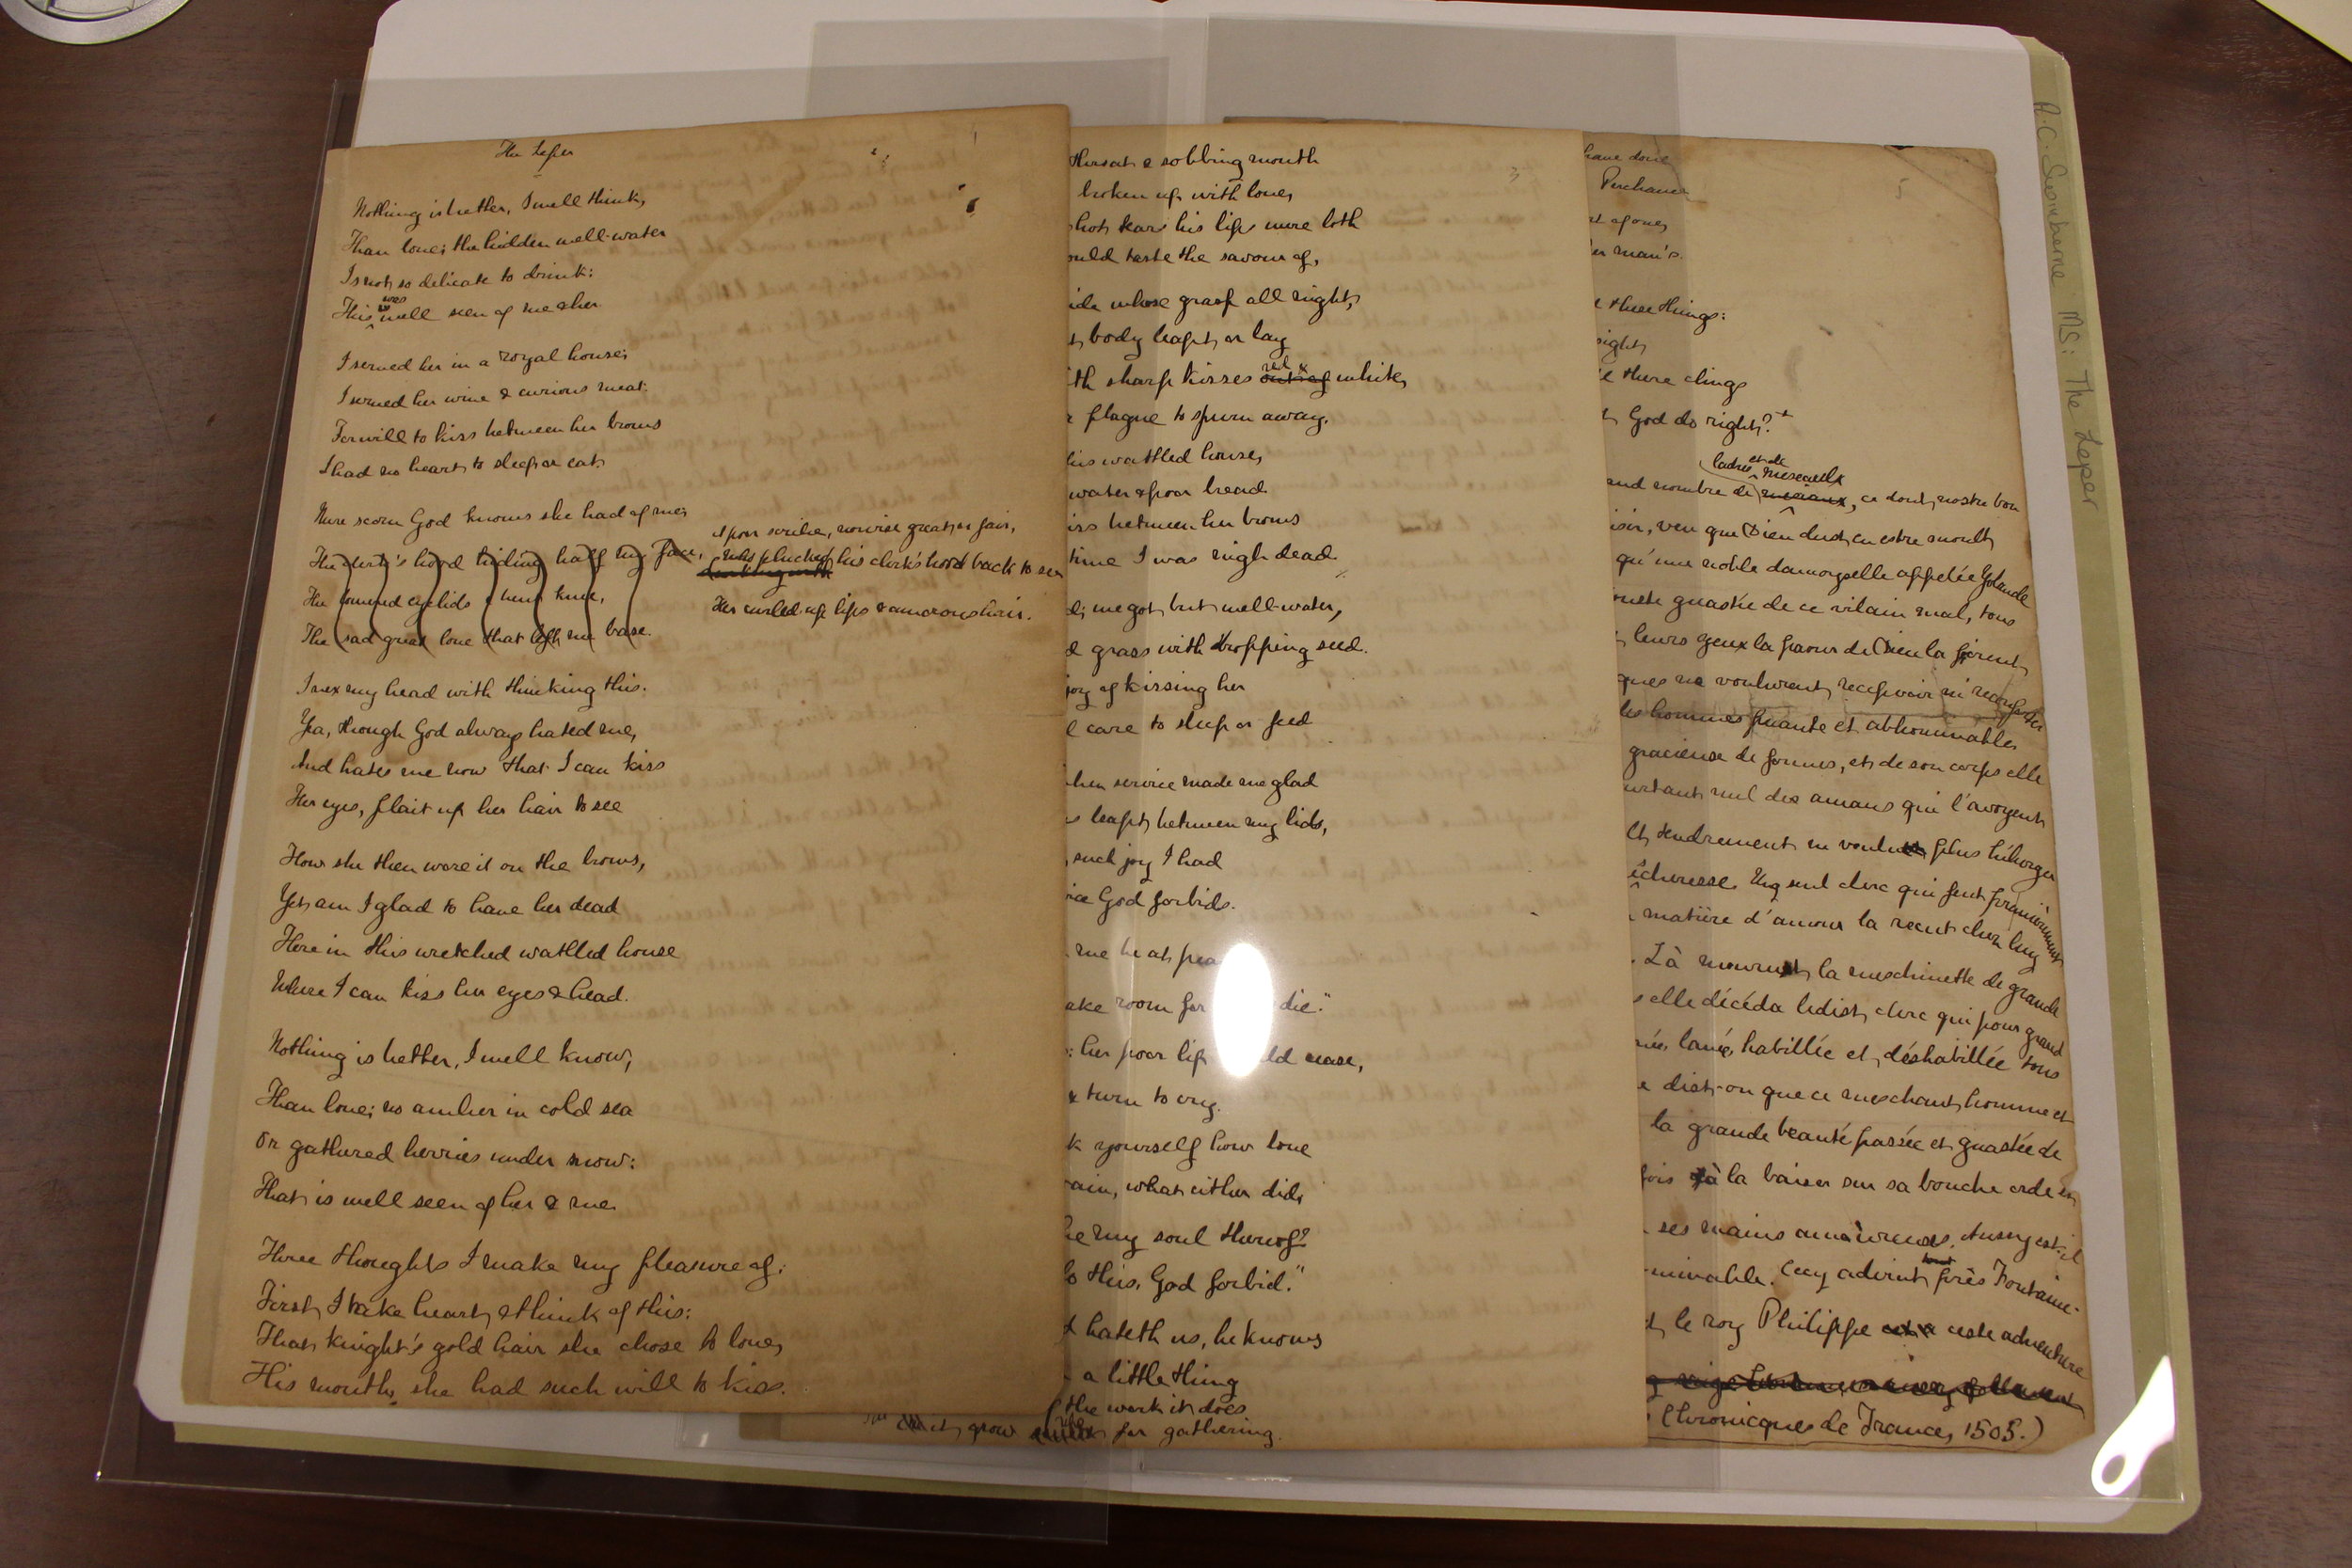 The Leper
Nothing is better, I well think,
Than love; the hidden well-water
Is not so delicate to drink:
This was well seen of me & her.
I served her in a royal house;
I served her wine & curious meat.
For will to kiss between her brows
I had no heart to sleep or eat.
Mere scorn God knows she had of me;
The clerk's hood hiding half my face,
The lowered eyelids & knee,
The sad great love that left me base.
A poor scribe, nowise great or fair,
Who plucked his clerk's hood back to see
Her curled-up lips & amorous hair.
I vex my head with thinking this.
Yea, though God always hated me,
And hates me now that I can kiss
Her eyes, plait up her hair to see
How she then wore it on the brows,
Yet am I glad to have her dead
Here in this wretched wattled house
Where I can kiss her eyes & head.
Nothing is better, I well know,
Than love; no amber in cold sea
Or gathered berries under snow:
That is well seen of her & me.
Three thoughts I make my pleasure of:
First I take heart & think of this:
That knight's gold hair she chose to love,
His mouth she had such will to kiss.
throat & sobbing mouth
broken up with love,
hot tears his lips were loth
ould taste the savour of,
ide whose grasp all night,
body leapt or lay
th sharp kisses red & out of white,
plague to spurn away.
his wattled house,
water & poor bread
iss between her brows
time I was nigh dead.
d; we got but well-water,
d grass with dropping seed.
joy of kissing her
l care to sleep or feed
when service made me glad
s leapt between my lids,
such joy I had
ice God forbids.
me be at pea
ake room for die."
: her poor lip ld cease,
& turn to cry.
k yourself how love
ain, what either did,
he my soul thereof?
o this, God forbid."
t hateth us, he knows
a little thing
the work it does
it grow for gathering.
have done
Perchance
t of one,
er man's.
e three things:
sight,
e there clings
t God do right?
ladres et de meseaulx
and nombre de meseaux, ce dont nostre bon
isir, veu que Dieu dust en estre moult
qu'une noble damoyselle appelée Yolande
guastée de ce vilain mal, tous
leurs yeux la paour de Dieu la firent
ques ne voulurent recepvoir ni reconforter
les hommes puante et abhominable
gracieuse de formes, et de son corps elle
urtant nul des amans qui l'avoyent
et tendrement ne voulut plus héberger
écheresse. Ung seul clerc qui feut premièrement
matière d'amour la reçut chez luy
. Là mourut la meschinette de grande
s elle décéda ledist clerc qui pour grand
née, lavée, habillée et déshabillée tous
e dist-on que ce meschant homme et
la grande beauté passée et guastée de
fois à la baiser sur sa bouche orde et
ses mains amoureuses. Aussy est-il
minable. Cecy advint tout près Fontaine-
t le roy Philippe ceste adventure
Chronicques de France, 1505.)
A.C. Swinburne MS: The Leper